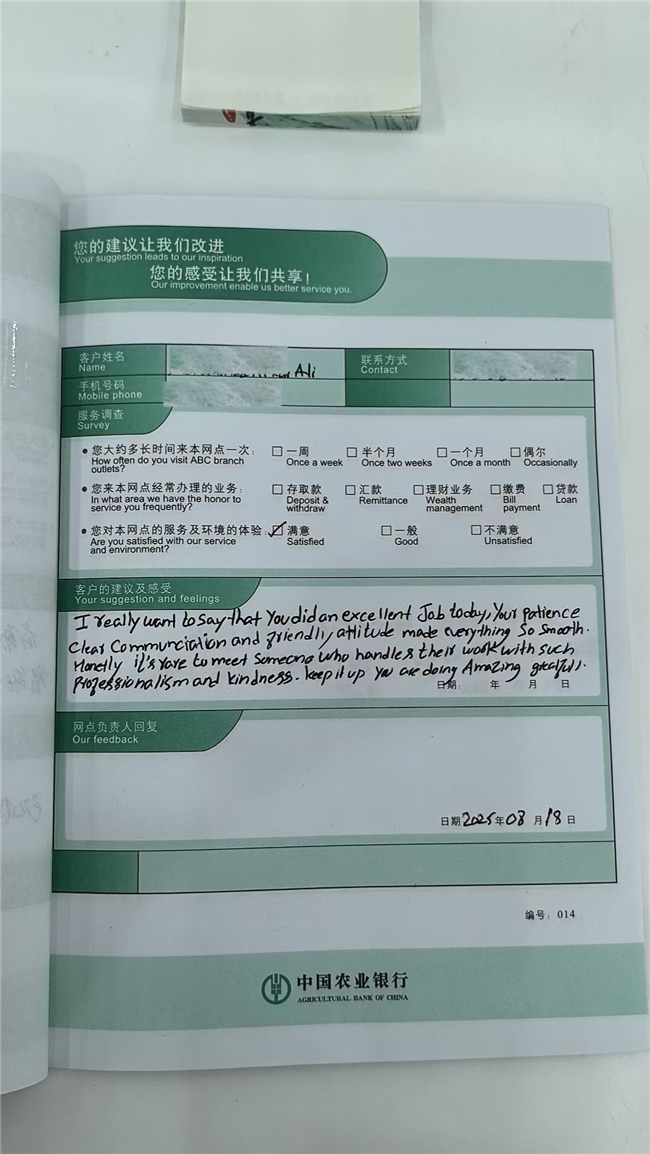 您的建议让我们改进
Your suggestion leads to our inspiration
您的感受让我们共享!
Our improvement enable us better service you.
客户姓名
Name
Ali
联系方式
Contact
手机号码
Mobile phone
服务调查
Survey
您大约多长时间来本网点一次:
How often do you visit ABC branch
outlets?
一周 半个月 一个月 偶尔
Once a week Once two weeks Once a month Occasionally
您来本网点经常办理的业务:
In what area we have the honor to
service you frequently?
存取款 汇款 理财业务 缴费 贷款
Deposit & Remittance Wealth Bill Loan
withdraw management payment
您对本网点的服务及环境的体验:
Are you satisfied with our service
and environment?
满意 一般 不满意
Satisfied Good Unsatisfied
客户的建议及感受
Your suggestion and feelings
I really want to say that You did an excellent Job today, Your patience
Clear Communciation and friendly attitude made everything So Smooth.
Honetly it's rare to meet Someone who handles their work with such
Professionalism and kindness. keep it up You are doing Amazing
日期: 年 月 日
网点负责人回复
Our feedback
日期 2025 年 08 月 18 日
编号: 014
中国农业银行
AGRICULTURAL BANK OF CHINA